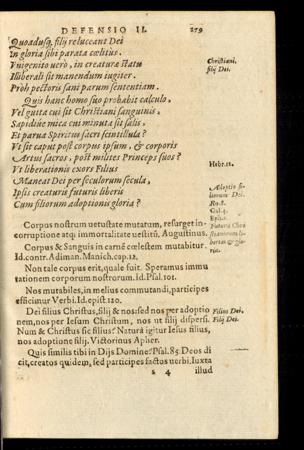 DEFENSIO II. 279
Quoadusq; filij reluceant Dei
In gloria sibi parata cœlitus.
Vnigenito verò, in creaturæ statu
Illiberali sit manendum iugiter.
Pròh pectoris sani parum sententiam.
Quis hanc homo suo probabit calculo,
Vel gutta cui sit Christiani sanguinis,
Sapidæue mica cui minuta sit salis,
Et parua Spiritus sacri scintillula?
Vt sit caput post corpus ipsum, & corporis
Artus sacros, post milites Princeps suos?
Vt liberationis exors Filius
Maneat Dei per seculorum secula,
Ipsis creaturis futuris liberis
Cum filiorum adoptionis gloria?
Christiani,
filij Dei.
Hebr. 12.
Adoptio filiorum Dei.
Ro. 8.
Gal. 4.
Ephs. 1.
Futura Christianorum libertas & gloria.
Corpus nostrum uetustate mutatum, resurget in-
corruptione atq; immortalitate uestitū, Augustinus.
Corpus & Sanguis in carnē cœlestem mutabitur.
Id. contr. Adiman. Manich. cap. 12.
Non tale corpus erit, quale fuit. Speramus immu
tationem corporum nostrorum. Id. Psal. 101.
Nos mutabiles, in melius commutandi, participes
efficimur Verbi. Id. epist. 120.
Dei filius Christus, filij & nos: sed nos per adoptio
nem, nos per Iesum Christum, nos ut filij dispersi.
Num & Christus sic filius? Natura igitur Iesus filius,
nos adoptione filij. Victorinus Apher.
Filius Dei.
Filij Dei.
Quis similis tibi in Dijs Domine? Psal. 85. Deos di
cit, creatos quidem, sed participes factos uerbi. Iuxta
s 4 illud